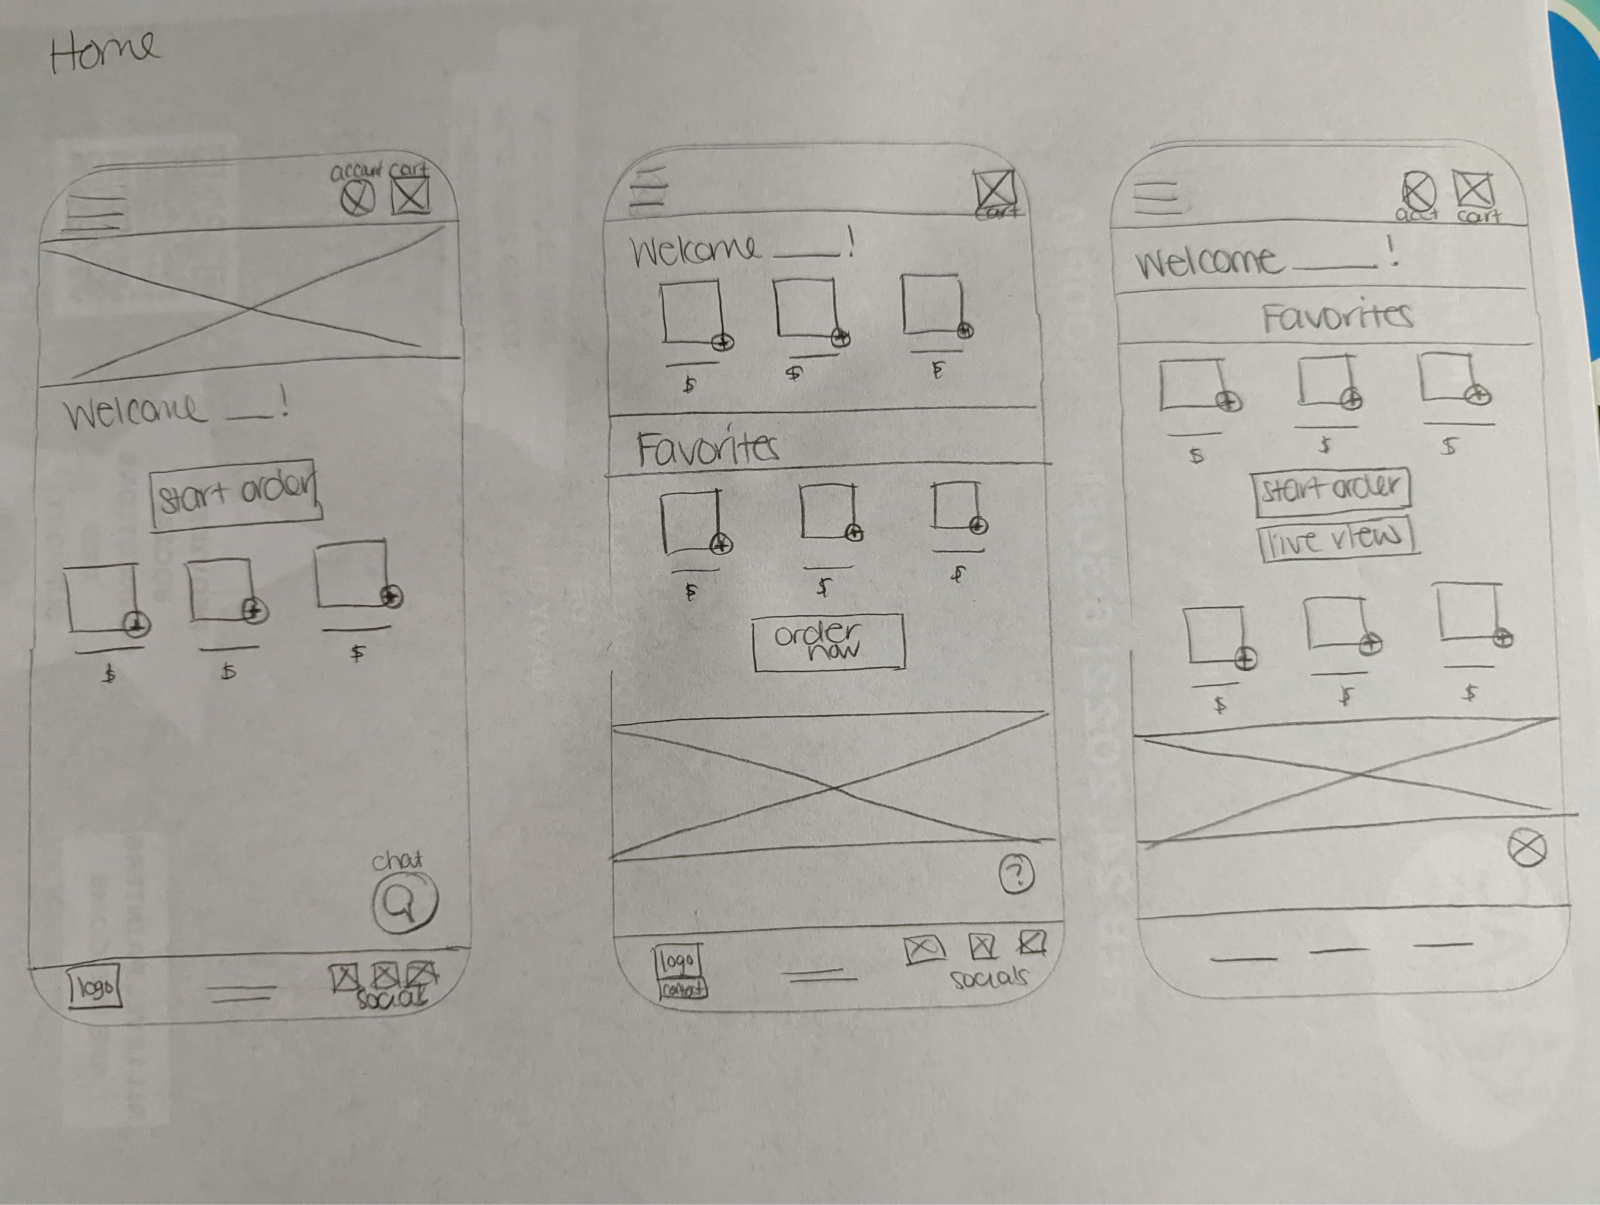 Home
account cart
Welcome __!
start order
$ $ $
chat
logo
socials
cart
Welcome ____!
$ $ $
Favorites
$ $ $
order
now
?
logo
contact
socials
acct cart
Welcome ____!
Favorites
$ $ $
start order
live view
$ $ $